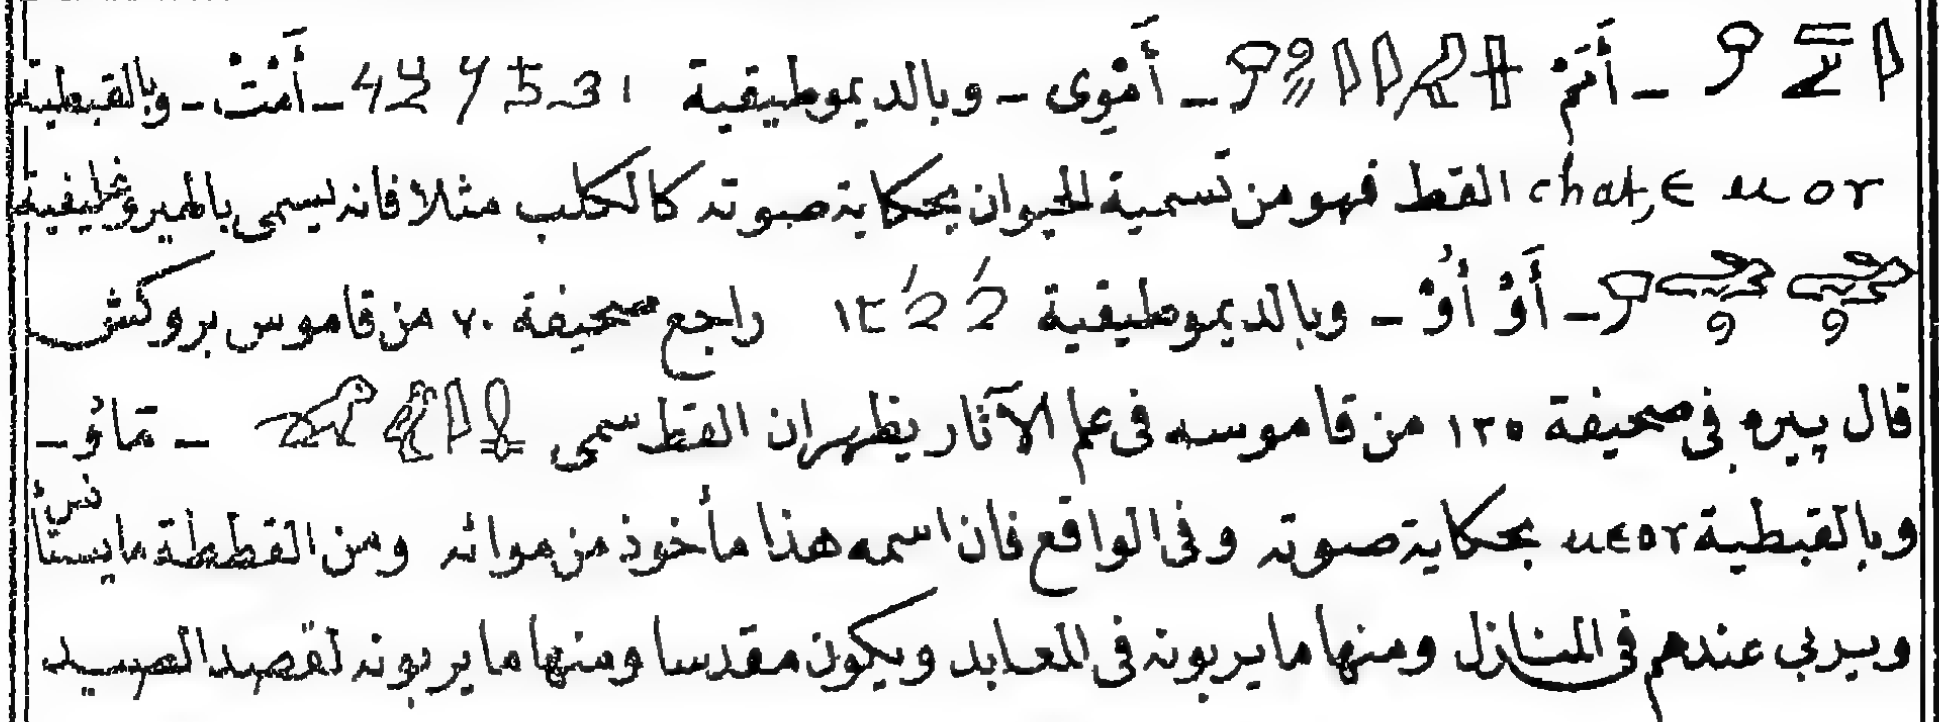 أَتَمْ - أَمْوِى - وبالديموطيقية - أَمْتْ - وبالقبطية
ⲉⲙⲟⲩ ,chat القط فهو من تسمية الحيوان بحكاية صوته كالكلب مثلا فانه يسمى بالهيروغليفية
- أَوْ أُوْ - وبالديموطيقية راجع صحيفة ٧٠ من قاموس بروكش
قال پيره فى صحيفة ١٣٥ من قاموسه فى علم الآثار يظهران القط سمى - تماؤ -
وبالقبطية ⲙⲉⲟⲩ بحكاية صوته وفى الواقع فان اسمه هذا مأخوذ من موائه ومن القططة ما يستأنس
ويربى عندهم فى المنازل ومنها ما يربونه فى المعابد ويكون مقدسا ومنها ما يربونه لقصد الصيد